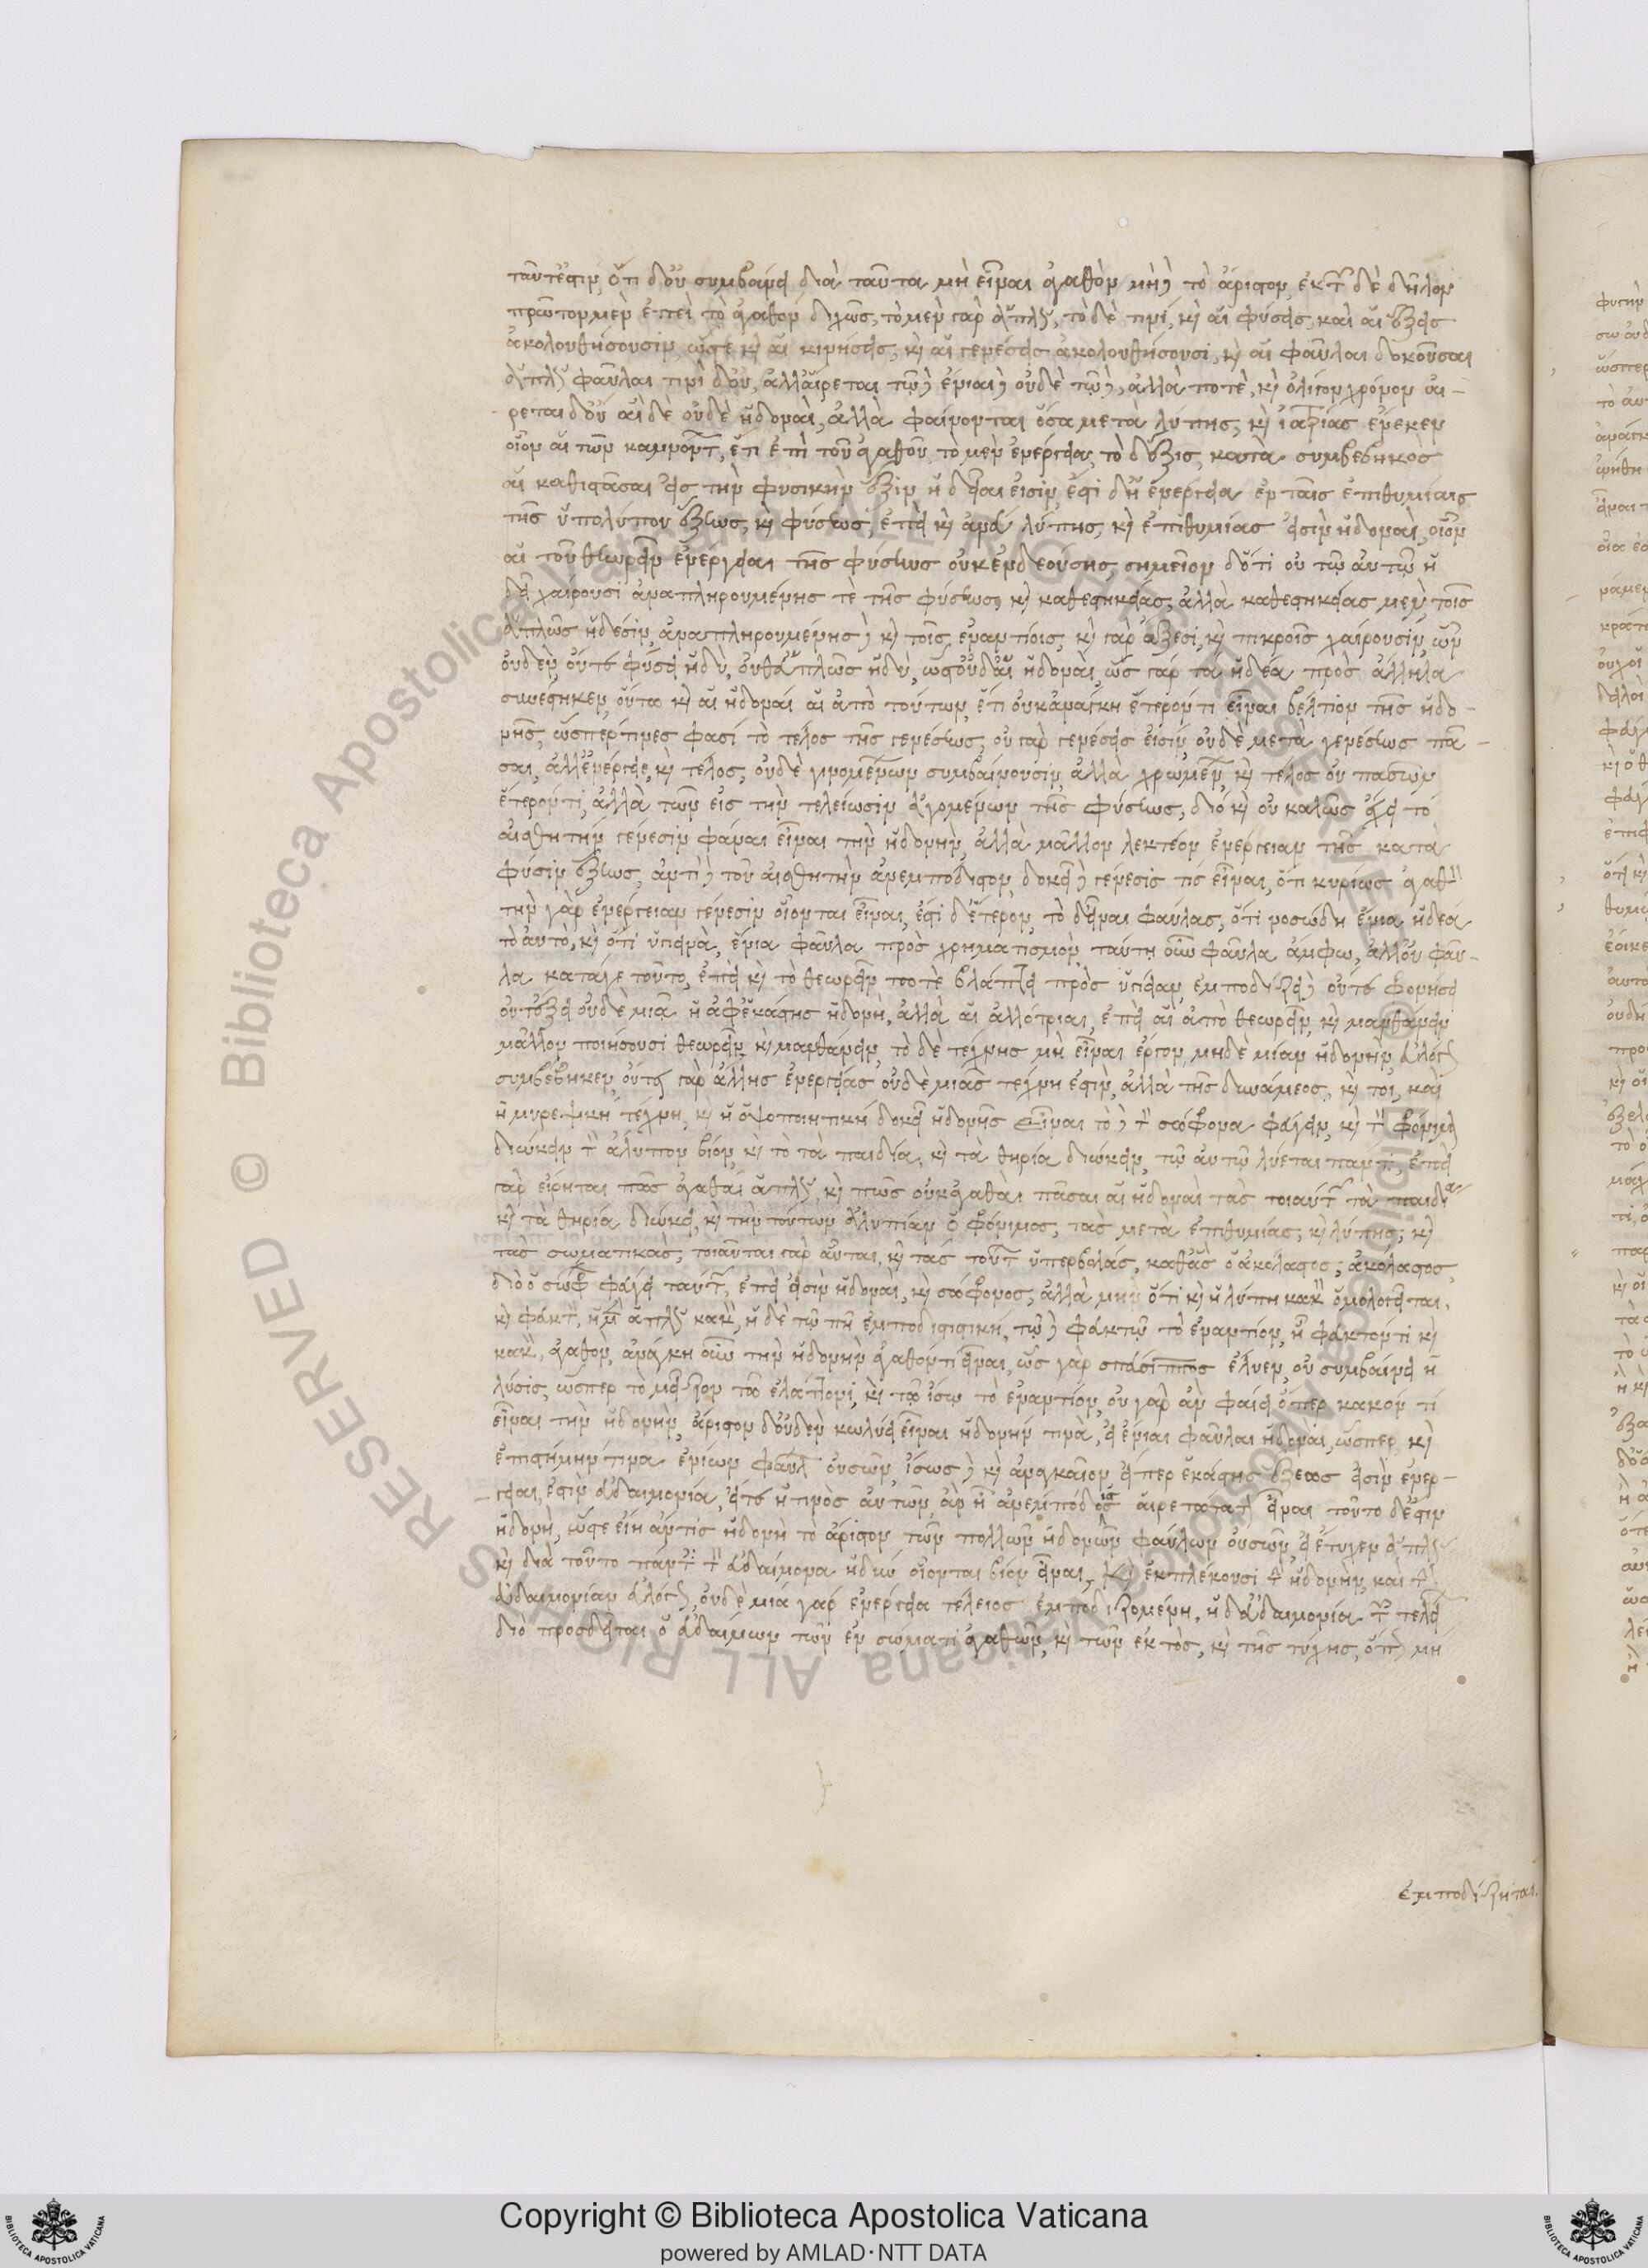 ταῦτ' ἐστίν, ὅτι δ' οὐ συμβαίνει διὰ ταῦτα μὴ εἶναι ἀγαθὸν μηδὲ τὸ ἄριστον, ἐκ τῶνδε δῆλον
πρῶτον μὲν ἐπεὶ τὸ ἀγαθὸν διχῶς, τὸ μὲν γὰρ ἁπλῶς, τὸ δὲ τινί, καὶ αἱ φύσεις, καὶ αἱ ἕξεις
ἀκολουθήσουσιν, ὥστε καὶ αἱ κινήσεις, καὶ αἱ γενέσεις ἀκολουθήσουσι, καὶ αἱ φαῦλαι δοκοῦσαι
ἁπλῶς φαῦλαι τινὶ δ' οὔ, ἀλλ' αἱρεταὶ τῷδε ἔνιαι δὲ οὐδὲ τῷδε, ἀλλὰ ποτὲ, καὶ ὀλίγον χρόνον αἱ-
ρεταὶ δ' οὔ αἱ δὲ οὐδὲ ἡδοναὶ, ἀλλὰ φαίνονται ὅσαι μετὰ λύπης, καὶ ἰατρείας ἕνεκεν
οἷον αἱ τῶν καμνόντων, ἔτι ἐπεὶ τοῦ ἀγαθοῦ τὸ μὲν ἐνέργεια, τὸ δ' ἕξις, κατὰ συμβεβηκὸς
αἱ καθιστᾶσαι εἰς τὴν φυσικὴν ἕξιν ἡδεῖαι εἰσίν, ἔστι δ' ἡ ἐνέργεια ἐν ταῖς ἐπιθυμίαις
τῆς ὑπολύπου ἕξεως, καὶ φύσεως, ἐπεὶ καὶ ἄνευ λύπης, καὶ ἐπιθυμίας εἰσὶν ἡδοναὶ, οἷον
αἱ τοῦ θεωρεῖν ἐνέργειαι τῆς φύσεως οὐκ ἐνδεοῦς, σημεῖον δ' ὅτι οὐ τῷ αὐτῷ ἡ
δεῖ χαίρουσι ἀναπληρουμένης τὲ τῆς φύσεως καὶ καθεστηκείας, ἀλλὰ καθεστηκείας μὲν τοῖς
ἁπλῶς ἡδέσιν, ἀναπληρουμένης δὲ καὶ τοῖς ἐναντίοις, καὶ γὰρ ὀξέσι, καὶ πικροῖς χαίρουσιν, ὧν
οὐδὲν οὔτε φύσει ἡδὺ, οὔθ' ἁπλῶς ἡδὺ, ὥστ' οὐδ' αἱ ἡδοναὶ, ὡς γὰρ τὰ ἡδέα πρὸς ἄλληλα
συνέστηκεν, οὕτω καὶ αἱ ἡδοναὶ αἱ ἀπὸ τούτων, ἔτι οὐκ ἀνάγκη ἕτερόν τι εἶναι βέλτιον τῆς ἡδο-
νῆς, ὥσπερ τινες φασὶ τὸ τέλος τῆς γενέσεως, οὐ γὰρ γενέσεις εἰσίν, οὐδὲ μετὰ γενέσεως πᾶ-
σαι, ἀλλ' ἐνέργειαι, καὶ τέλος, οὐδὲ γινομένων συμβαίνουσιν, ἀλλὰ χρωμένων, καὶ τέλος οὐ πασῶν
ἕτερόν τι, ἀλλὰ τῶν εἰς τὴν τελείωσιν ἀγομένων τῆς φύσεως, διὸ καὶ οὐ καλῶς ἔχει τὸ
αἰσθητὴν γένεσιν φάναι εἶναι τὴν ἡδονὴν, ἀλλὰ μᾶλλον λεκτέον ἐνέργειαν τῆς κατὰ
φύσιν ἕξεως, ἀντὶ δὲ τοῦ αἰσθητὴν ἀνεμπόδιστον, δοκεῖ δὲ γένεσίς τις εἶναι, ὅτι κυρίως ἀγαθόν
τὴν γὰρ ἐνέργειαν γένεσιν οἴονται εἶναι, ἔστι δ' ἕτερον, τὸ δ' εἶναι φαύλας, ὅτι νοσώδη ἔνια ἡδέα
τὸ αὐτὸ, καὶ ὅτι ὑγιεινὰ ἔνια φαῦλα πρὸς χρηματισμόν, ταύτῃ οὖν φαῦλα ἄμφω, ἀλλ' οὐ φαῦ-
λα κατά γε τοῦτο, ἐπεὶ καὶ τὸ θεωρεῖν ποτὲ βλάπτει πρὸς ὑγίειαν, ἐμποδίζει δὲ οὔτε φρονήσει
οὔθ' ἕξει οὐδὲ μιᾷ ἡ ἀφ' ἑκάστης ἡδονὴ, ἀλλὰ αἱ ἀλλότριαι, ἐπεὶ αἱ ἀπὸ θεωρεῖν, καὶ μανθάνειν
μᾶλλον ποιήσουσι θεωρεῖν, καὶ μανθάνειν, τὸ δὲ τέχνης μὴ εἶναι ἔργον, μηδὲ μίαν ἡδονὴν, εὐλόγως
συμβέβηκεν, οὔτε γὰρ ἄλλης ἐνεργείας οὐδὲ μιᾶς τέχνη ἐστὶν, ἀλλὰ τῆς δυνάμεος, καὶ τοι, καὶ
ἡ μυρεψικὴ τέχνη, καὶ ἡ ὀψοποιητικὴ δοκεῖ ἡδονῆς εἶναι τὸ δὲ τὸν σώφρονα φεύγειν, καὶ τὸν φρόνιμον
διώκειν τὸν ἄλυπον βίον, καὶ τὸ τὰ παιδία, καὶ τὰ θηρία διώκειν, τῷ αὐτῷ λύεται πάντα, ἐπεὶ
γὰρ εἴρηται πῶς ἀγαθαὶ ἁπλῶς, καὶ πῶς οὐκ ἀγαθαὶ πᾶσαι αἱ ἡδοναὶ τὰς τοιαύτας τὰ παιδία
καὶ τὰ θηρία διώκει, καὶ τὴν τούτων ἀλυπίαν ὁ φρόνιμος, τὰς μετὰ ἐπιθυμίας, καὶ λύπης, καὶ
τὰς σωματικὰς, τοιαῦται γὰρ αὗται, καὶ τὰς τούτων ὑπερβολάς, καθ' ἃς ὁ ἀκόλαστος, ἀκόλαστος,
διὸ ὁ σώφρων φεύγει ταύτας, ἐπεὶ εἰσὶν ἡδοναὶ, καὶ σώφρονος, ἀλλὰ μὴν ὅτι καὶ ἡ λύπη κακὸν ὁμολογεῖται,
καὶ φευκτόν, ἡ μὲν ἁπλῶς κακόν, ἡ δὲ τῷ πῇ ἐμποδιστική, τῷ δὲ φευκτῷ τὸ ἐναντίον, ᾗ φευκτόν τι καὶ
κακὸν, ἀγαθὸν, ἀνάγκη οὖν τὴν ἡδονὴν ἀγαθόν τι εἶναι, ὡς γὰρ σπεύσιππος ἔλυεν, οὐ συμβαίνει ἡ
λύσις, ὥσπερ τὸ μεῖζον τῷ ἐλάττονι, καὶ τῷ ἴσῳ τὸ ἐναντίον, οὐ γὰρ ἂν φαίη ὅπερ κακόν τι
εἶναι τὴν ἡδονὴν, ἄριστον δ' οὐδὲν κωλύει εἶναι ἡδονήν τινα, εἰ ἔνιαι φαῦλαι ἡδοναὶ, ὥσπερ καὶ
ἐπιστήμην τινα ἐνίων φαύλων οὐσῶν, ἴσως δὲ καὶ ἀναγκαῖον, εἴπερ ἑκάστης ἕξεως εἰσὶν ἐνέρ-
γειαι, ἐστὶν εὐδαιμονία, εἴτε ἡ πρὸς αὐτῶν, ἂν ᾖ ἀνεμπόδιστος αἱρετωτάτην εἶναι τοῦτο δ' ἐστὶν
ἡδονὴ, ὥστε εἴη ἄν τις ἡδονὴ τὸ ἄριστον τῶν πολλῶν ἡδονῶν φαύλων οὐσῶν, εἰ ἔτυχεν ἁπλῶς
καὶ διὰ τοῦτο πάντες τὸν εὐδαίμονα ἡδὺν οἴονται βίον εἶναι, καὶ ἐκπλέκουσι τὴν ἡδονὴν, καὶ τὴν
εὐδαιμονίαν εὐλόγως, οὐδὲ μία γὰρ ἐνέργεια τέλειος ἐμποδιζομένη, ἡ δ' εὐδαιμονία τῶν τελείων
διὸ προσδεῖται ὁ εὐδαίμων τῶν ἐν σώματι ἀγαθῶν, καὶ τῶν ἐκτὸς, καὶ τῆς τύχης, ὅπως μὴ
ἐμποδίζηται.
Copyright © Biblioteca Apostolica Vaticana
powered by AMLAD·NTT DATA